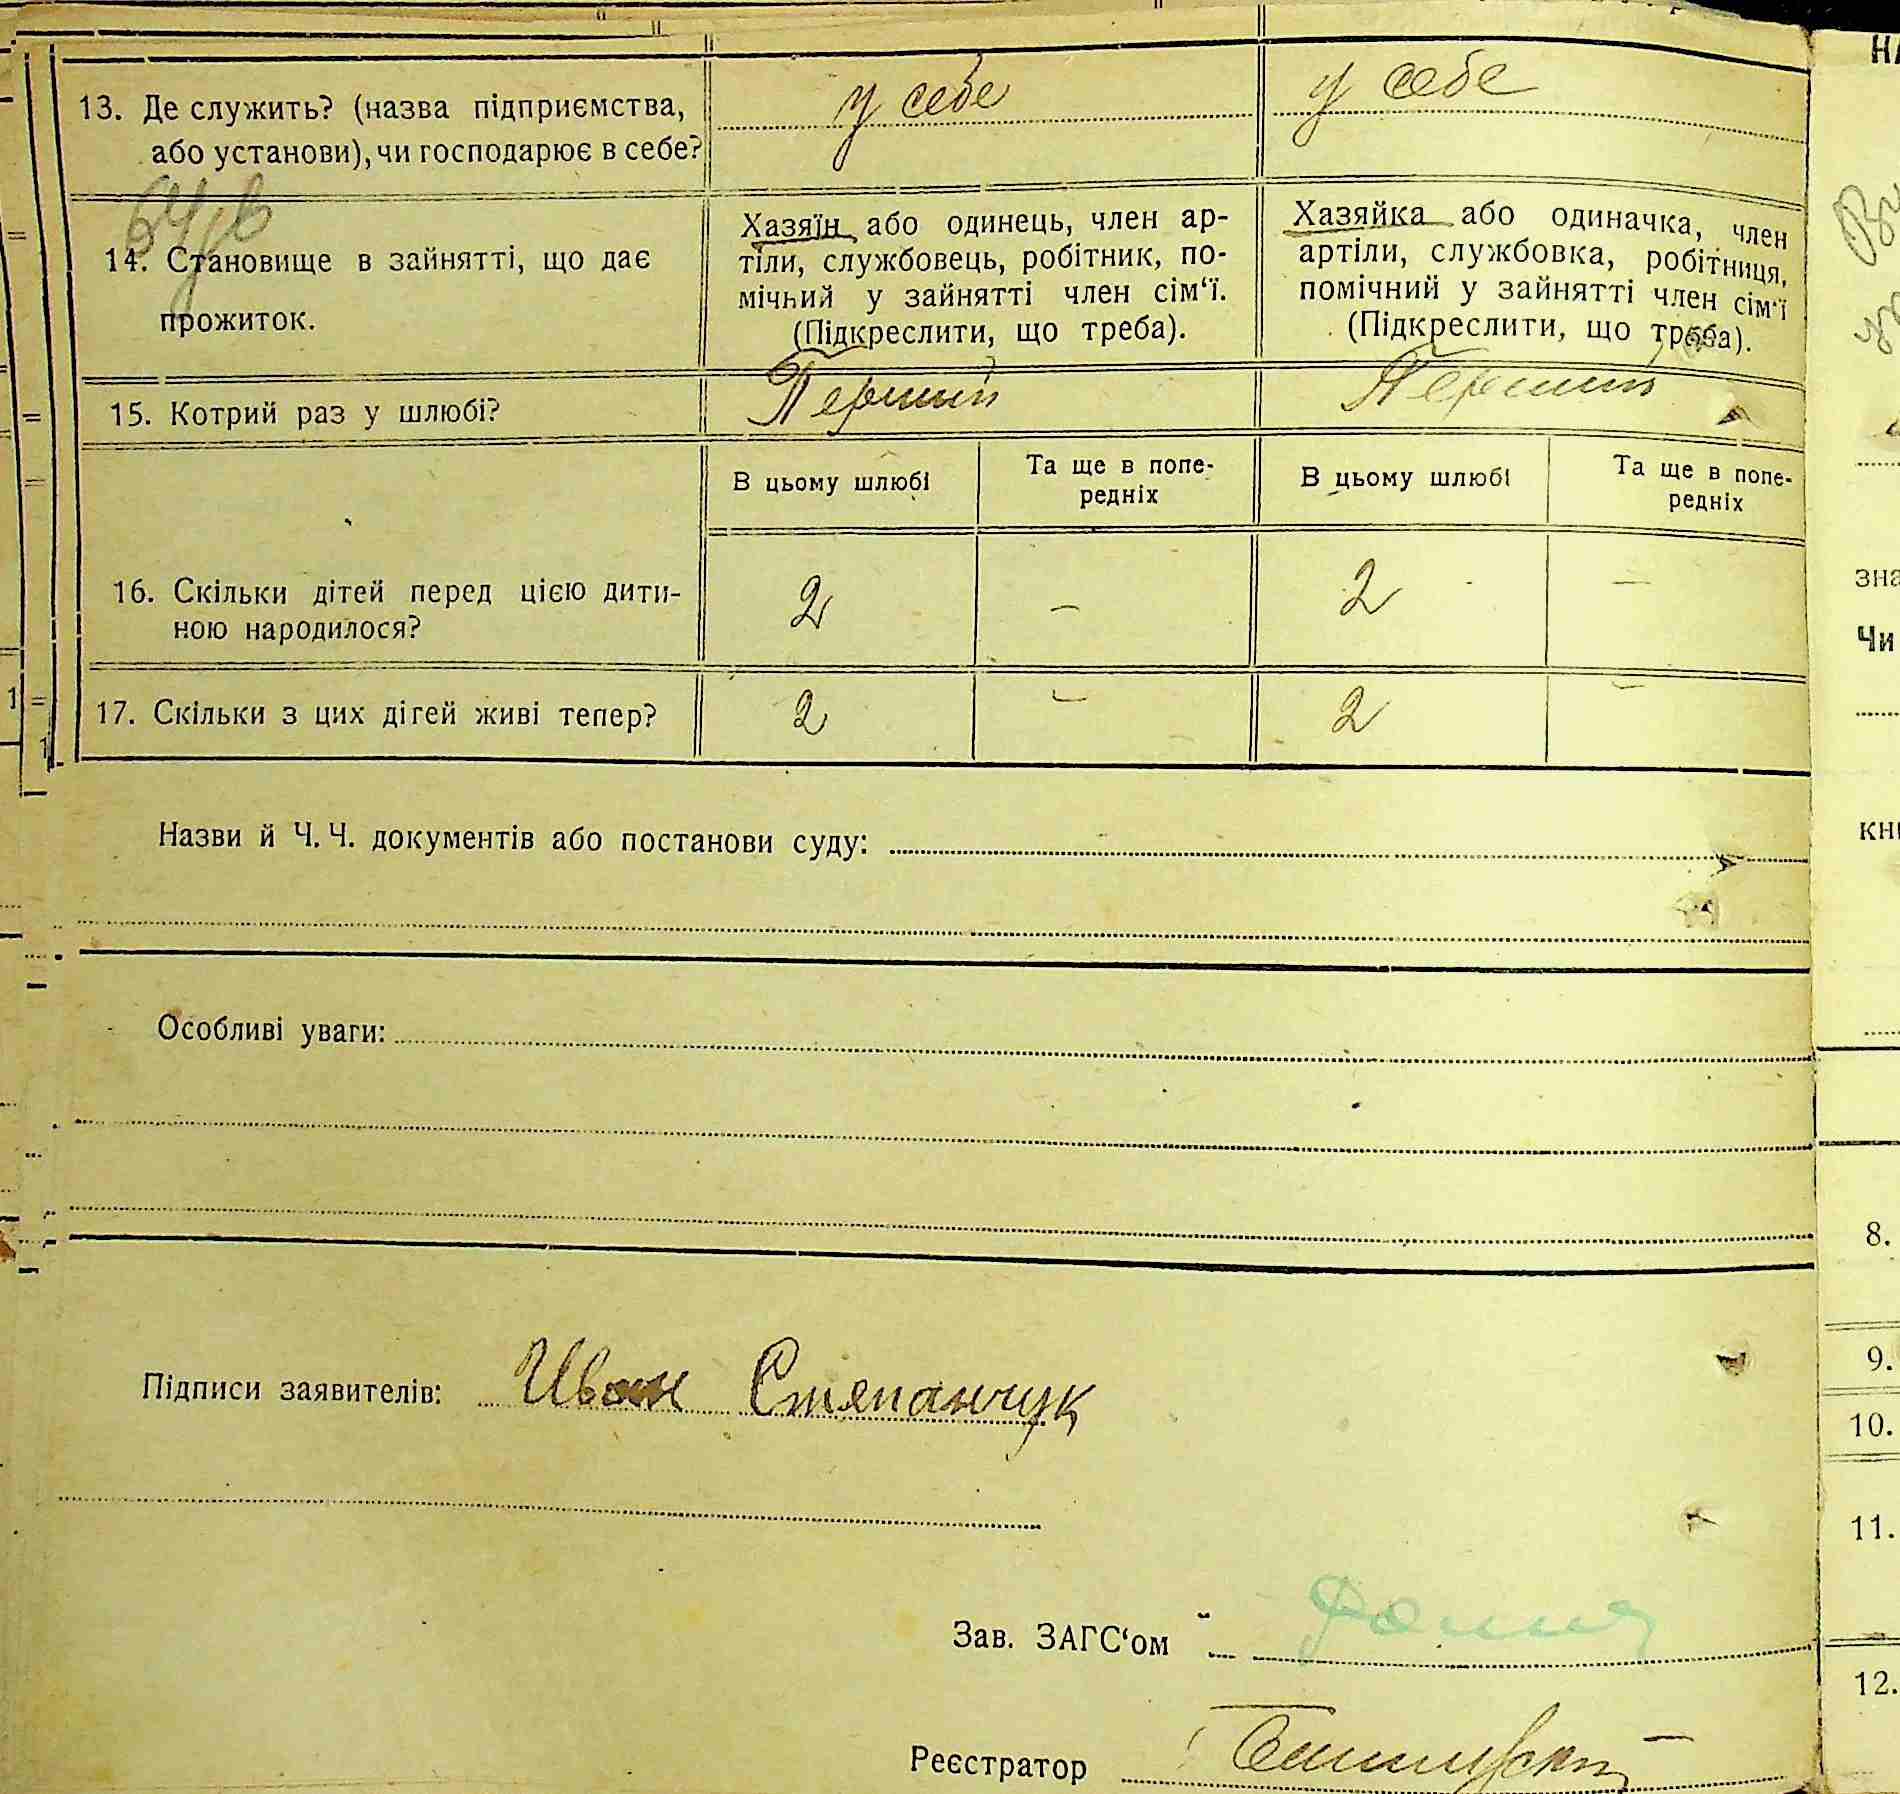 13. Де служить? (назва підприємства,
або установи), чи господарює в себе?
у себе
у себе
14. Становище в зайнятті, що дає
прожиток.
Хазяїн або одинець, член ар-
тіли, службовець, робітник, по-
мічний у зайнятті член сім‘ї.
(Підкреслити, що треба).
Хазяйка або одиначка, член
артіли, службовка, робітниця,
помічний у зайнятті член сім‘ї
(Підкреслити, що треба).
15. Котрий раз у шлюбі?
Перший
Перший
В цьому шлюбі
Та ще в попе-
редніх
В цьому шлюбі
Та ще в попе-
редніх
16. Скільки дітей перед цією дити-
ною народилося?
2
–
2
–
17. Скільки з цих дітей живі тепер?
2
–
2
–
Назви й Ч. Ч. документів або постанови суду:
Особливі уваги:
Підписи заявителів: Иван Стяпанчук
Зав. ЗАГС‘ом
Реєстратор
НА
зна
Чи
кни
8.
9.
10.
11.
12.